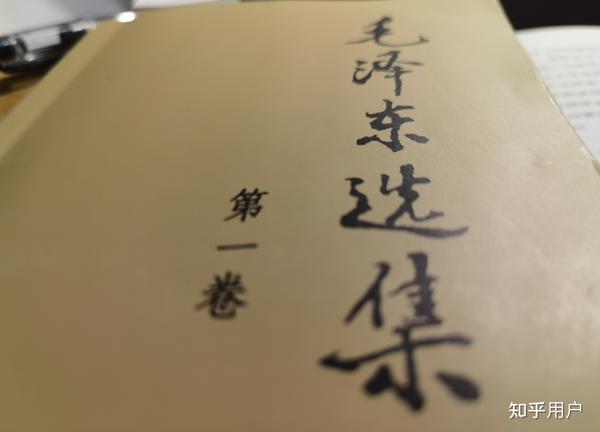 毛泽东选集
第一卷
知乎用户